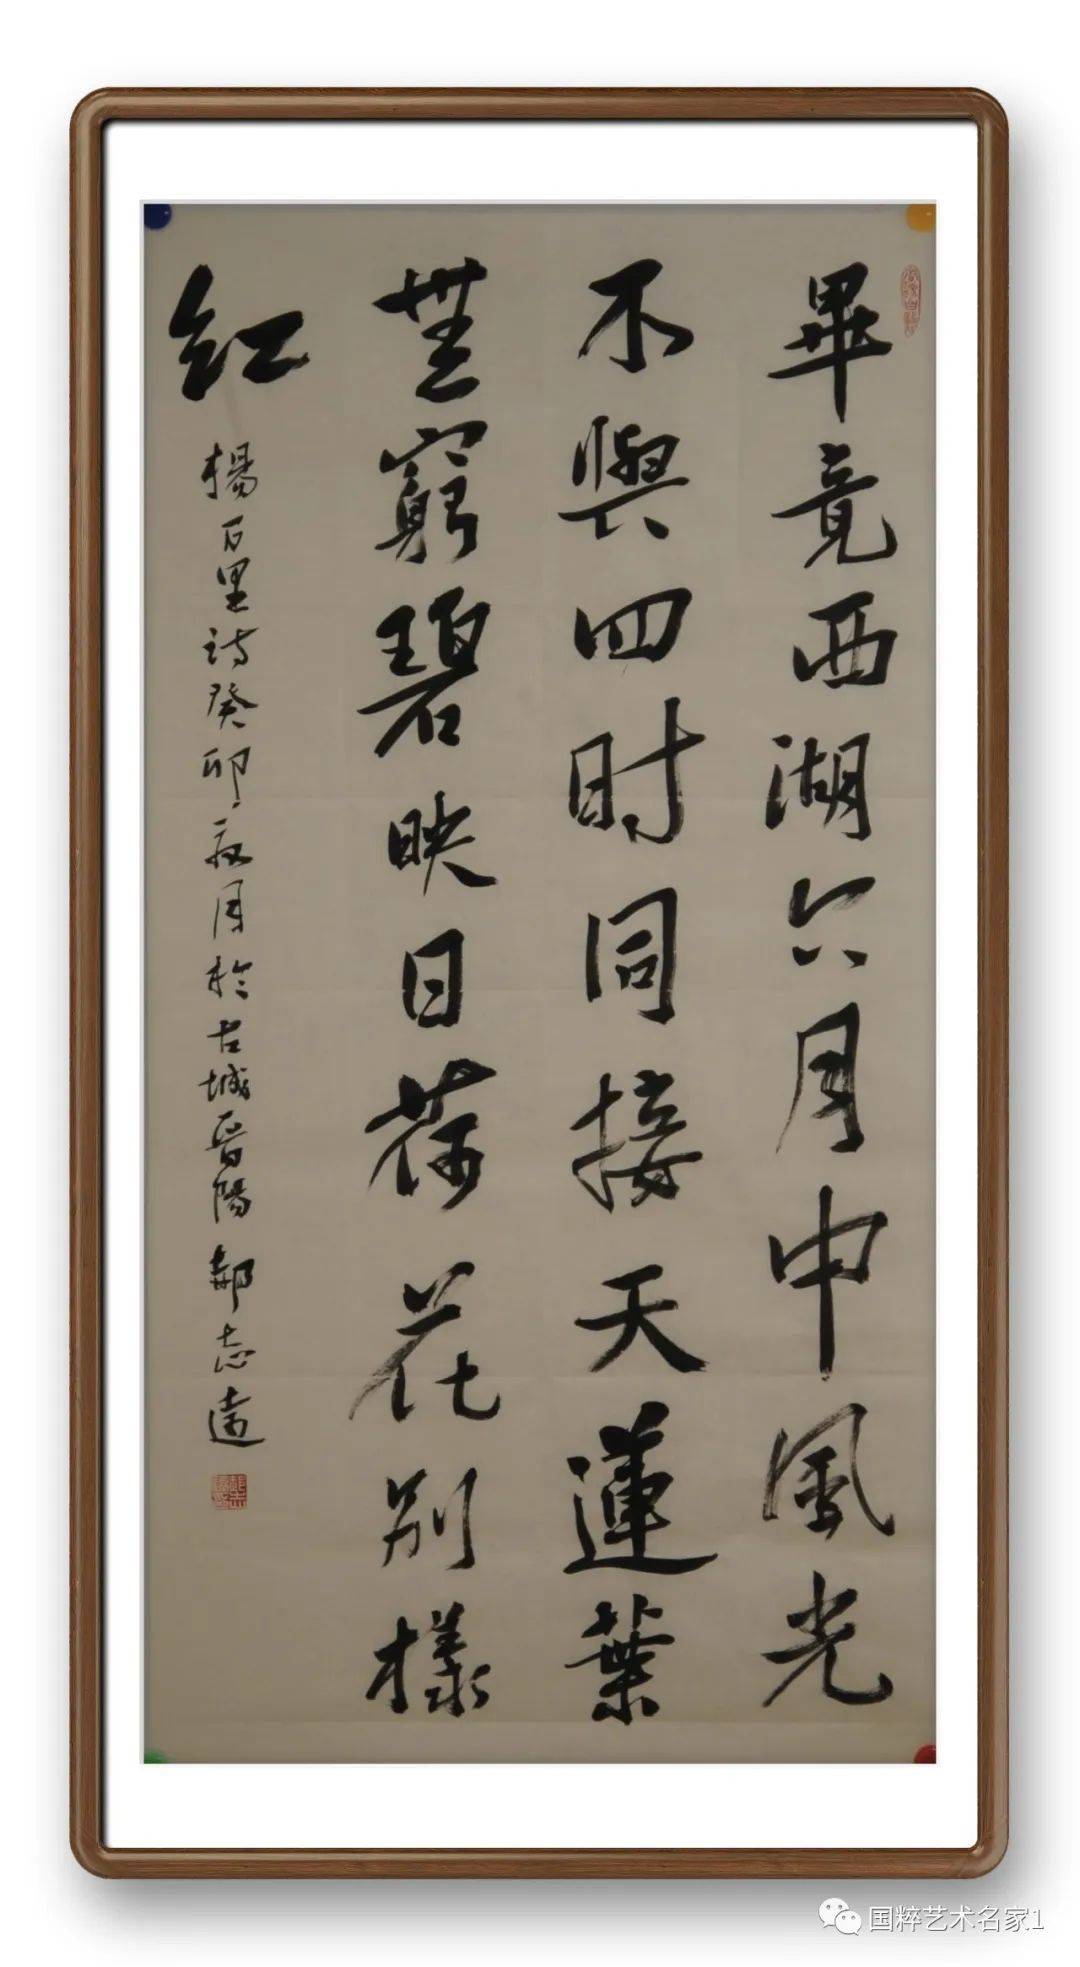 畢竟西湖六月申風光
不與四时同接天蓮葉
無窮碧映日荷花别樣
红
楊万里诗癸卯月於古城晋陽郝志遠
国粹艺术名家1